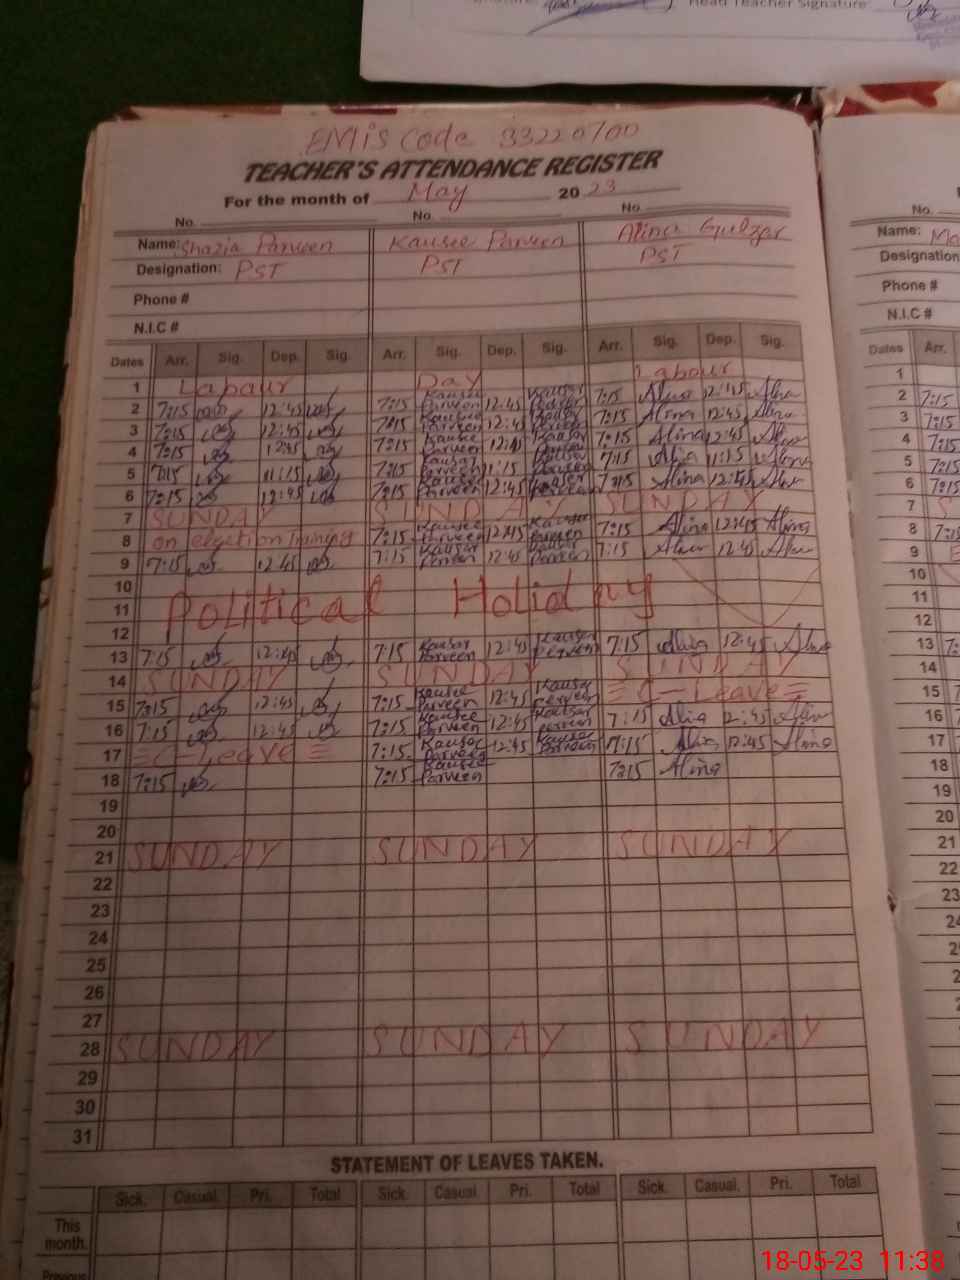 Head Teacher Signature
EMIS Code 33220700
TEACHER'S ATTENDANCE REGISTER
For the month of May 2023
No. No. No. No.
Name: Shazia Parveen Kausee Parveen Alina Gulzar Name:
Designation: PST PST PST Designation
Phone # Phone #
N.I.C # N.I.C #
Dates Arr. Sig. Dep. Sig. Arr. Sig. Dep. Sig. Arr. Sig. Dep. Sig. Dates Arr.
1 Labour Day Labour 1
2 7:15 12:45 7:15 Kausar Parveen 12:45 Kausar Parveen 7:15 Alina 12:45 Alina 2 7:15
3 7:15 12:45 7:15 Kausar Parveen 12:45 Kausar Parveen 7:15 Alina 12:45 Alina 3 7:15
4 7:15 12:45 7:15 Kausar Parveen 12:45 Kausar Parveen 7:15 Alina 12:45 Alina 4 7:15
5 7:15 11:15 7:15 Kausar Parveen 11:15 Kausar Parveen 7:15 Alina 11:15 Alina 5 7:15
6 7:15 12:45 7:15 Kausar Parveen 12:45 Kausar Parveen 7:15 Alina 12:45 Alina 6 7:15
7 SUNDAY SUNDAY SUNDAY 7
8 on election 7:15 Kausee Parveen 12:45 Kausar Parveen 7:15 Alina 12:45 Alina 8 7:15
9 7:15 12:45 7:15 Kausar Parveen 12:45 Kausar Parveen 7:15 Alina 12:45 Alina 9
10 10
11 Political Holiday 11
12 12
13 7:15 12:45 7:15 Kausar Parveen 12:45 Kausar Parveen 7:15 Alina 12:45 Alina 13
14 SUNDAY SUNDAY SUNDAY 14
15 7:15 12:45 7:15 Kausee Parveen 12:45 Kausar Parveen C-Leave 15
16 7:15 12:45 7:15 Kausee Parveen 12:45 Kausar Parveen 7:15 Alina 12:45 Alina 16
17 C-Leave 7:15 Kausar Parveen 12:45 Kausar Parveen 7:15 Alina 12:45 Alina 17
18 7:15 7:15 Kausee Parveen 7:15 Alina 18
19 19
20 20
21 SUNDAY SUNDAY SUNDAY 21
22 22
23 23
24 24
25
26
27
28 SUNDAY SUNDAY SUNDAY
29
30
31
STATEMENT OF LEAVES TAKEN.
Sick. Casual. Pri. Total Sick. Casual. Pri. Total Sick. Casual. Pri. Total
This month.
Previous
18-05-23 11:38